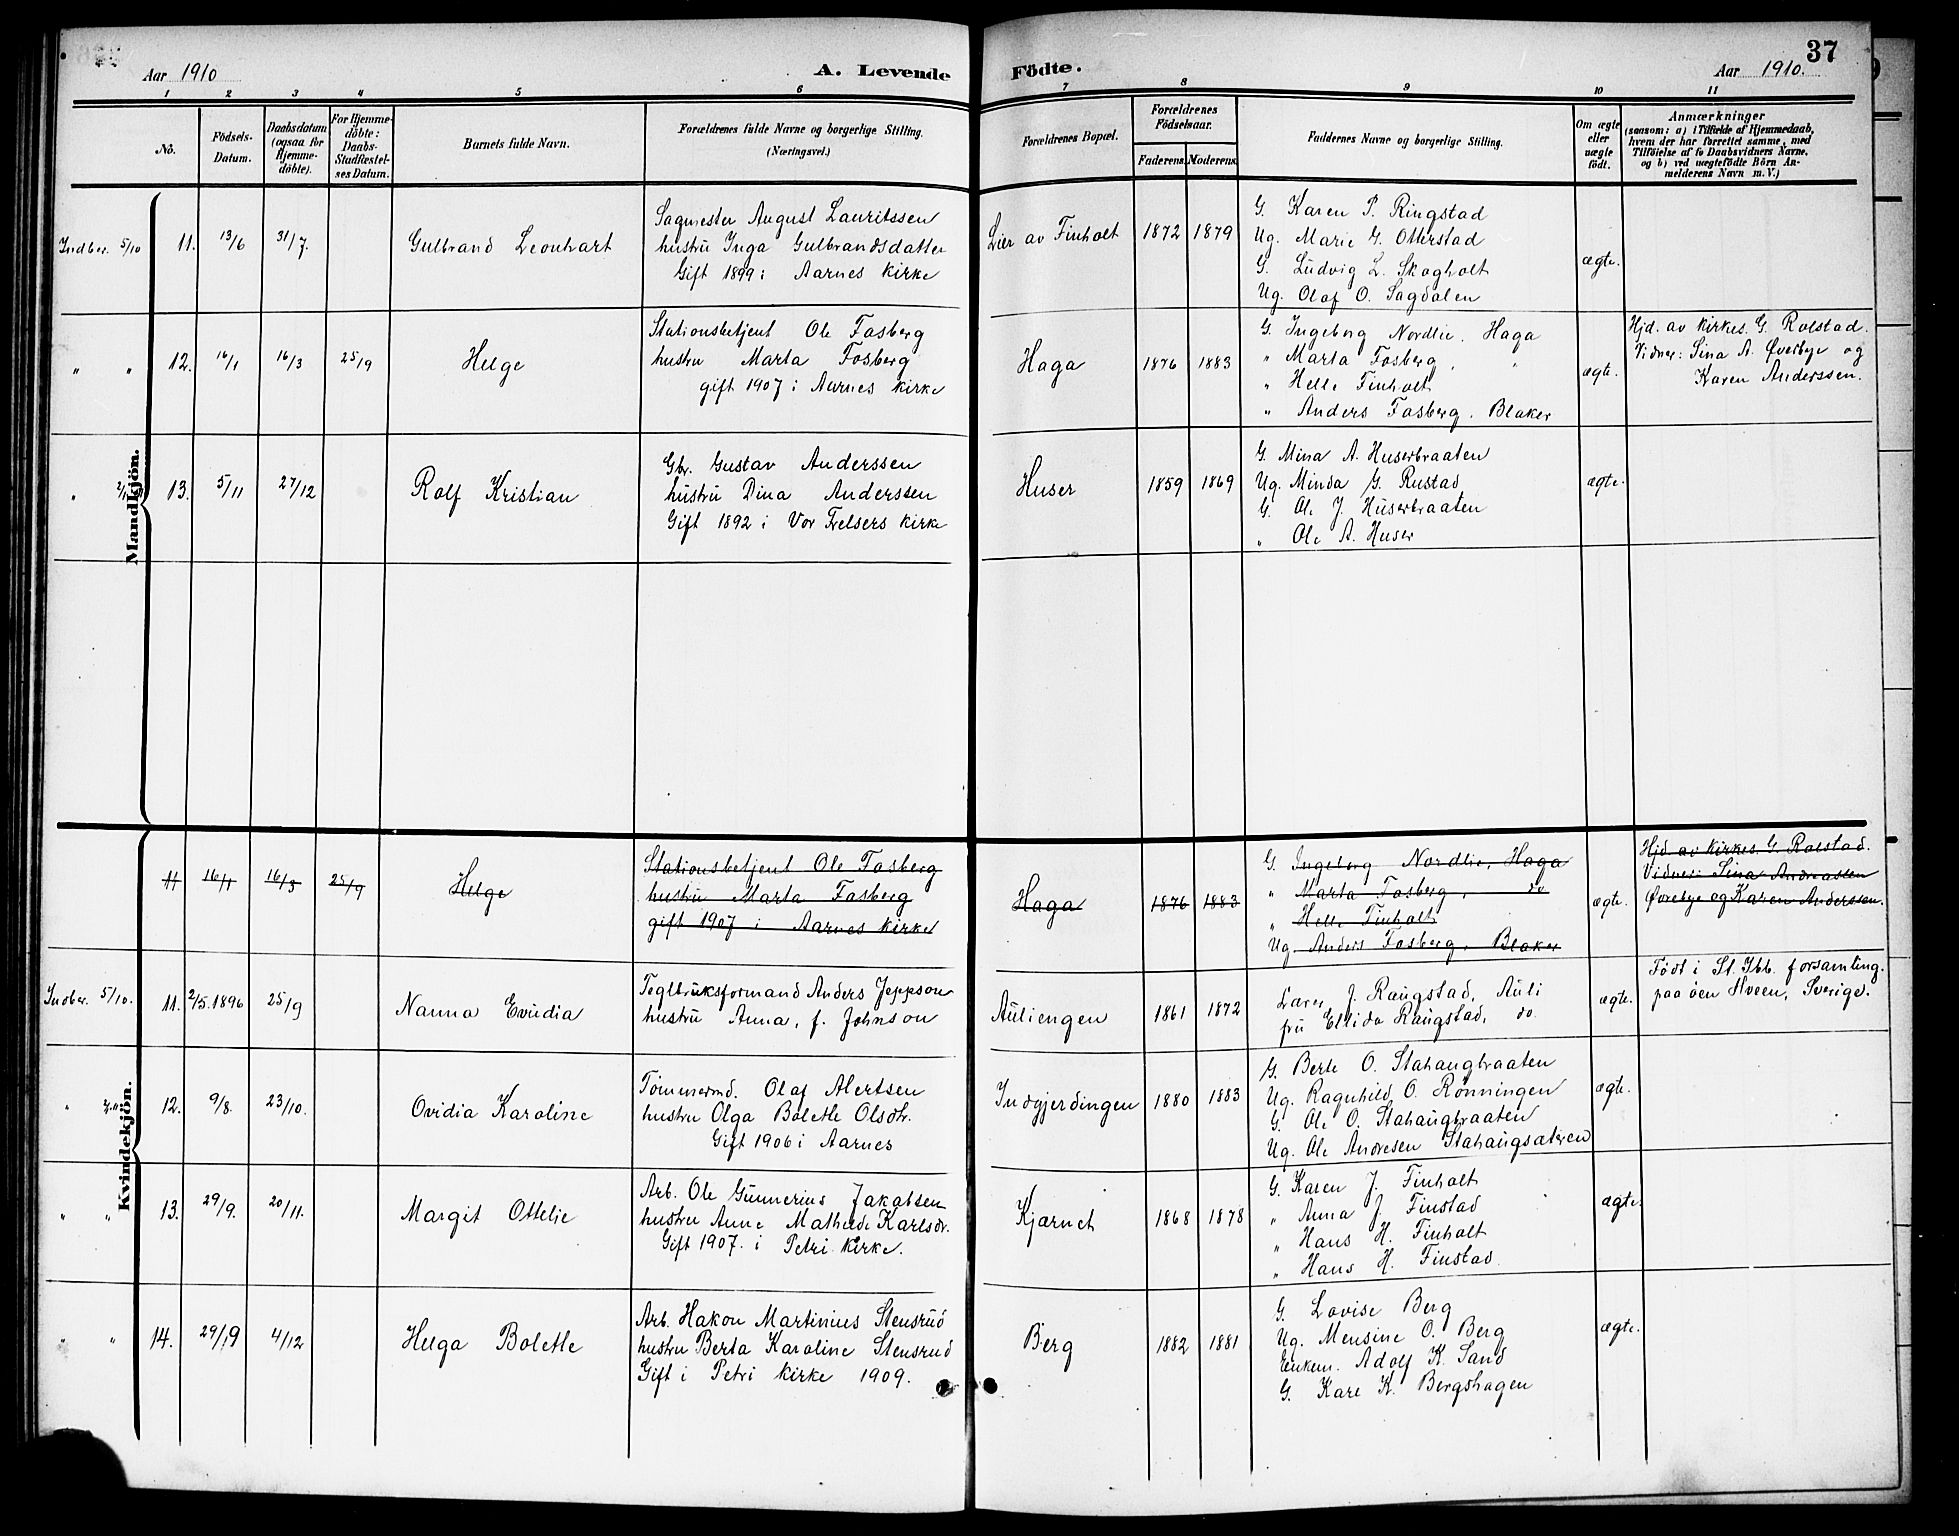 37
Aar 1910
A. Levende
Födte.
Aar 1910.
1 2 3 4 5 6 7 8 9 10 11
No.
Födsels-
Datum.
Daabsdatum
(ogsaa for
Hjemme-
döbte).
For Hjemme-
döbte:
Daabs-
Stadfæstel-
ses Datum.
Barnets fulde Navn.
Forældrenes fulde Navne og borgerlige Stilling.
(Næringsvei.)
Forældrenes Bopæl.
Forældrenes
Födselsaar.
Faderens.
Moderens.
Faddernes Navne og borgerlige Stilling.
Om ægte
eller
uægte
födt.
Anmærkninger
(saasom: a) i Tilfælde af Hjemmedaab,
hvem der har forrettet samme, med
Tilföielse af to Daabsvidners Navne,
og b) ved uægtefödte Börn An-
melderens Navn m. V.)
Mandkjön.
Indber. 5/10
11.
13/6
31/7.
Gulbrand Leonhart
Sagmester August Lauritssen
hustru Inga Gulbrandsdatter
Gift 1899 i Aarnes kirke
Lier av Finholt
1872
1879
G. Karen P. Ringstad
Ug. Marie G. Otterstad
G. Ludvig L. Skogholt
Ug. Olaf O. Sagdalen
ægte.
" "
12.
16/1
16/3
25/9
Helge
Stationsbetjent Ole Fosberg
hustru Marta Fosberg
gift 1907 i Aarnes kirke
Haga
1876
1883
G. Ingeborg Nordlie, Haga
" Marta Fosberg, "
" Helle Finholt
" Anders Fosberg, Blaker
ægte.
Hjd. av kirkes. G. Rolstad.
Vidner: Sina A. Øverbye og
Karen Anderssen.
"
13.
5/11
27/12
Rolf Kristian
Gbr. Gustav Anderssen
hustru Dina Anderssen
Gift 1892 i Vor Frelsers kirke
Huser
1859
1869
G. Mina A. Huserbraaten
Ug. Minda G. Rustad
G. Ole J. Huserbraaten
" Ole A. Huser
ægte.
Kvindekjön.
11
16/1
16/3
25/9
Helge
Stationsbetjent Ole Fosberg
hustru Marta Fosberg
gift 1907 i Aarnes kirke
Haga
1876
1883
G. Ingeborg Nordlie, Haga
" Marta Fosberg, do
" Helle Finholt
Ug. Anders Fosberg, Blaker
ægte.
Hjd. av kirkes. G. Rolstad.
Vidner: Sina Andreassen
Øverbye og Karen Anderssen.
Indber. 5/10.
11.
2/5.1896
25/9
Nanna Evidia
Teglbruksformand Anders Jeppson
hustru Anna, f. Johnson
Auliengen
1861
1872
Lærer J. Raugstad, Auli
fru Ellida Raugstad, do.
ægte.
Født i St. Ibb. forsamling.
paa øen Hveen, Sverige.
"
12.
9/8.
23/10.
Ovidia Karoline
Tømmermd. Olaf Alertsen
hustru Olga Bolette Olsdtr.
Gift 1906 i Aarnes
Indgjerdingen
1880
1883
G. Berte O. Stahaugbraaten
Ug. Ragnhild O. Rønningen
G. Ole O. Stahaugbraaten
Ug. Ole Andresen Stahaugsæteren
ægte.
" "
13.
29/9.
20/11.
Margit Ottelie
Arb. Ole Gunnerius Jakobsen
hustru Anne Mathilde Karlsdr.
Gift 1907. i Petri kirke.
Kjærnet
1868
1878
G. Karen J. Finholt
" Anna J. Finstad
" Hans H. Finholt
" Hans H. Finstad
ægte.
" "
14.
29/9
4/12
Helga Bolette
Arb. Hakon Martinius Stensrud
hustru Berta Karoline Stensrud
Gift i Petri kirke 1909.
Berg
1882
1881
G. Lovise Berg
Ug. Mensine O. Berg
Enkem. Adolf K. Sand
G. Kare K. Bergshagen
ægte.